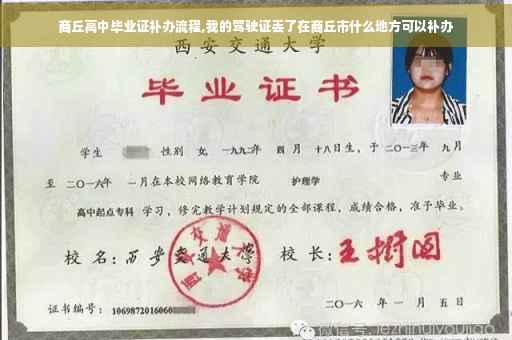 商丘高中毕业证补办流程,我的驾驶证丢了在商丘市什么地方可以补办
西安交通大学
毕业证书
学生 性别 女, 一九九二年 四月 十八日生, 于 二〇一三年 九月
至 二〇一六年 一月在本校网络教育学院 护理学 专业
高中起点专科 学习, 修完教学计划规定的全部课程, 成绩合格, 准予毕业。
校名: 西安交通大学 校长: 王树国
西安交通大学
证书编号: 1069872016060
二〇一六年 一月 五日
微信号: jezhinuiyoujiao